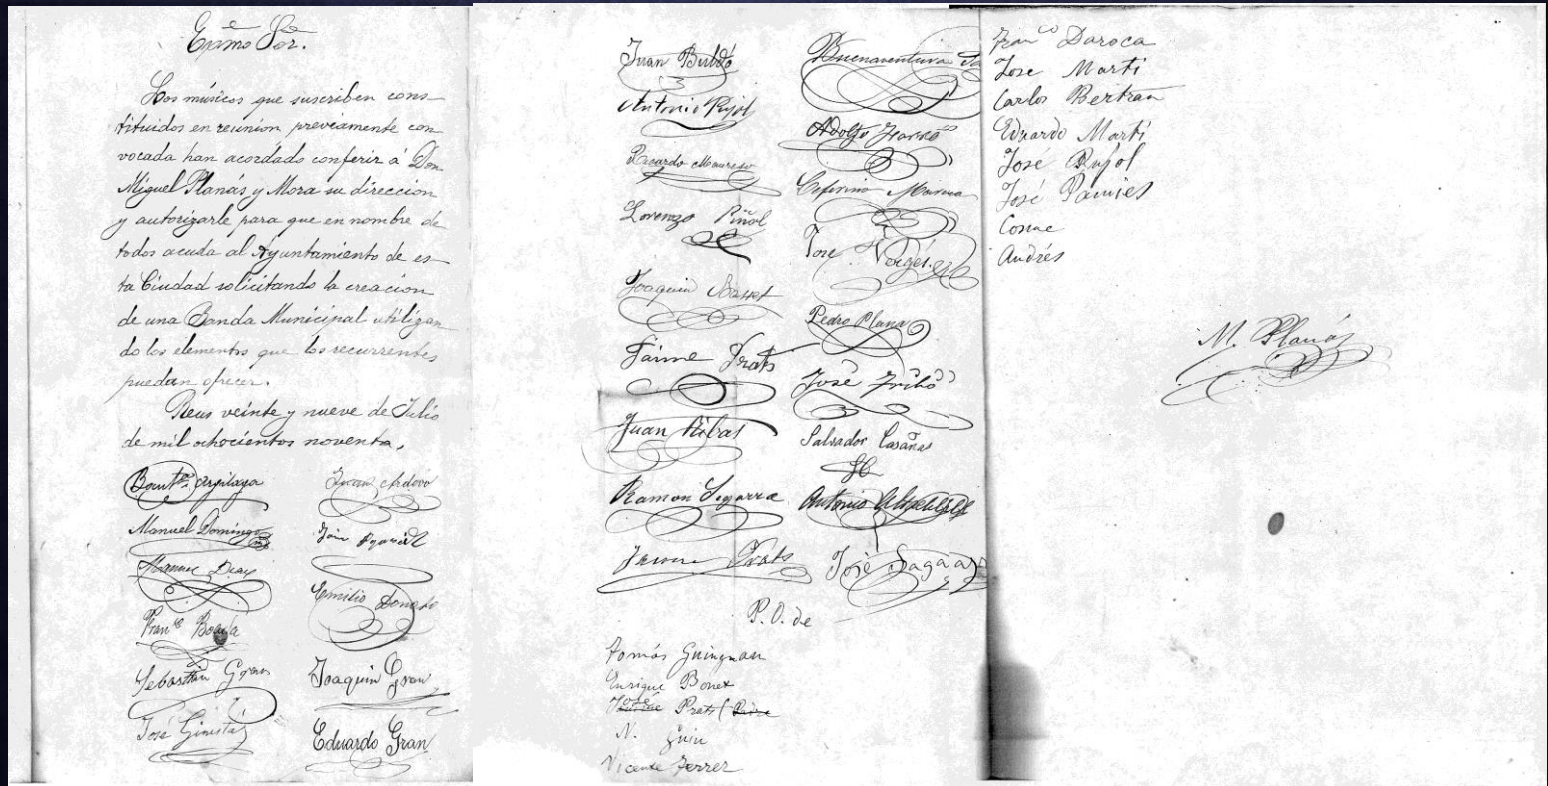 Exmo Sor.
Los músicos que suscriben cons
tituidos en reunion previamente con
vocada han acordado conferir á Don
Miguel Planás y Mora su direccion
y autorizarle para que en nombre de
todos acuda al Ayuntamiento de es
ta Ciudad solicitando la creacion
de una Banda Municipal utilizan
do los elementos que los recurrentes
puedan ofrecer.
Reus veinte y nueve de Julio
de mil ochocientos noventa.
Manuel Domingo
Emilio Donato
Sebastián Gran
Joaquin Gran
José Ginesta
Eduardo Gran
Juan Buldó
Antonio Pujol
Ricardo
Lorenzo Piñol
Joaquin
Jaime Prats
Juan Ribas
Ramon Segarra
Jaime Prats
Buenaventura
Adolfo
Ceferino
Jose
Pedro Plana
José Tribó
Salvador Casañas
Antonio
José
P.O. de
Tomás
Enrique Bonet
Prats
N. Guiu
Vicente Ferrer
Franco Daroca
Jose Marti
Carlos Bertran
Eduardo Marti
José Pujol
José Pamies
Cosme
Andrés
M. Planás